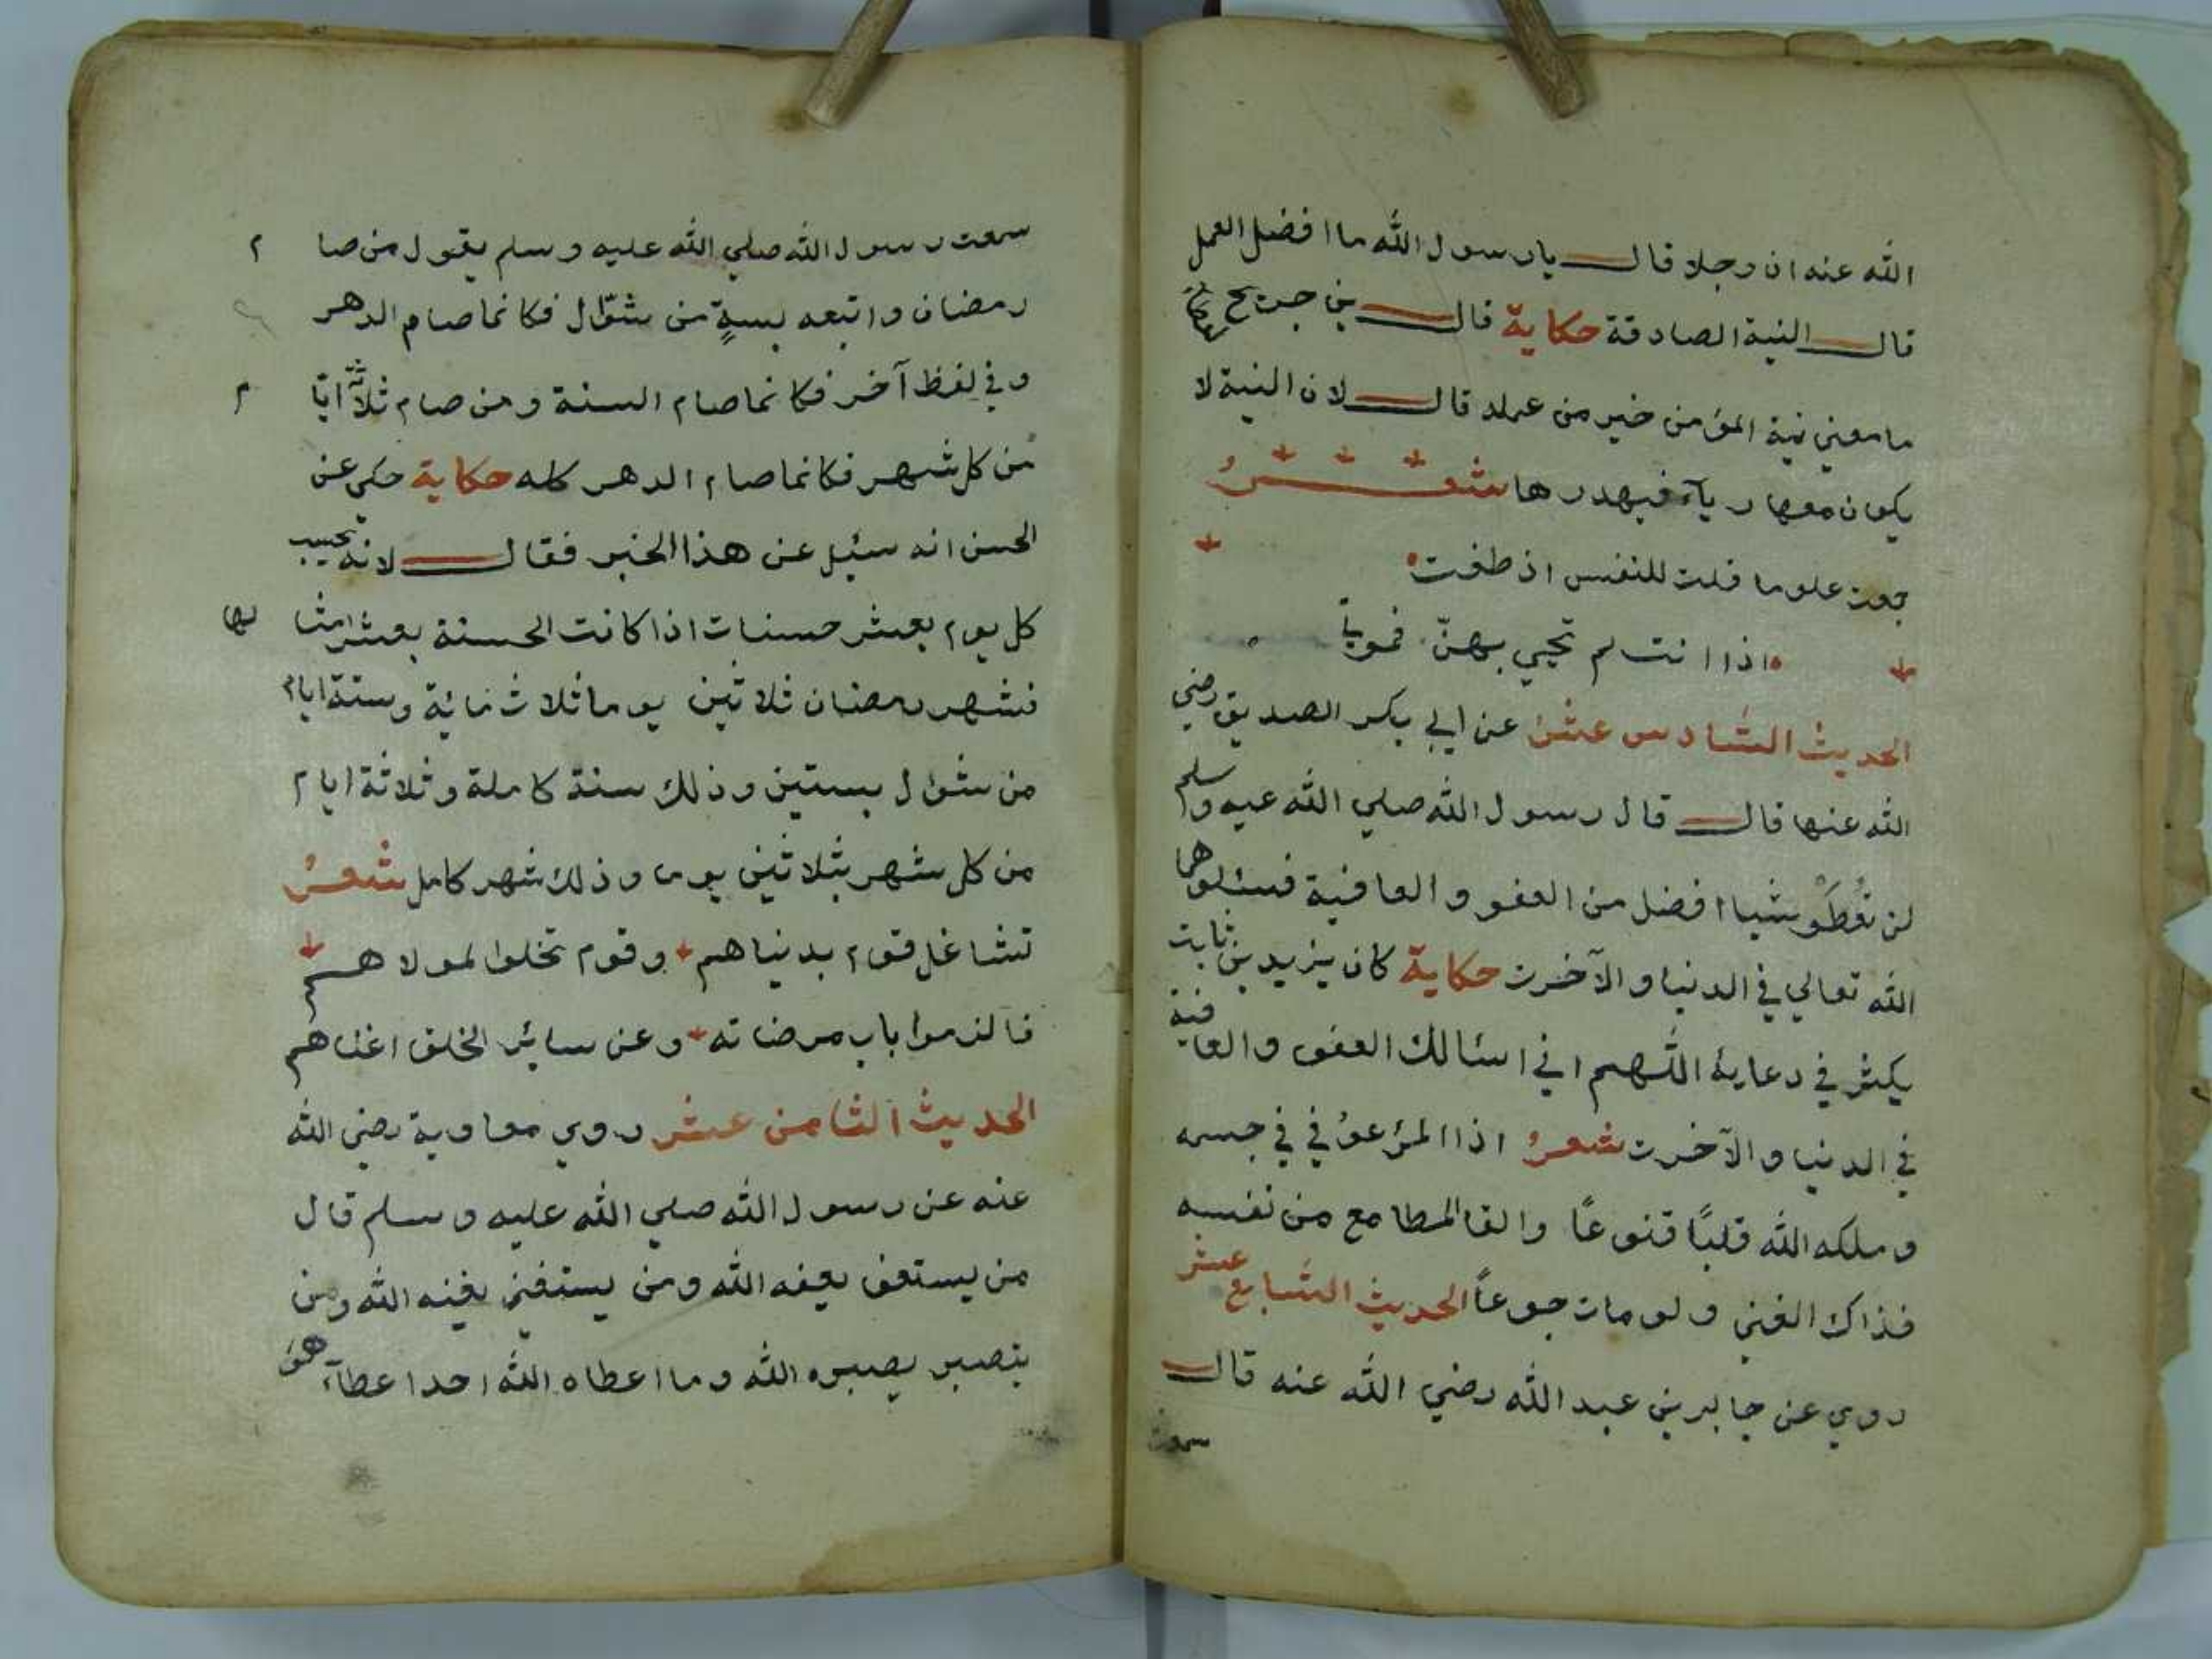 الله عنه ان رجلا قال يا رسول الله ما افضل العمل
قال النية الصادقة حكاية قال بن جريج
ما معني نية المؤمن خير من عمله قال لان النية لا
يكون معها رياء فيهدرها شعر
جمعت علوما قلت للنفس اذ طغت
اذا انت لم تحيي بهنّ فموتي
الحديث السادس عشر عن ابي بكر الصديق رضي
الله عنها قال قال رسول الله صلي الله عيه وسلم
لن تُعْطَوْ شيا افضل من العفو والعافية فسئلوهما
الله تعالي في الدنيا والآخرت حكاية كان يزيد بن ثابت
يكثر في دعايهٔ اللهم اني اسالك العفو والعافية
في الدنيا والآخرت شعرٌ اذا المرٔ عوُفي في جسمه
وملكه الله قلبًا قنوعًا والقا المطامع من نفسه
فذاك الغني ولو مات جوعاً الحديث السابع عشر
روي عن جابر بن عبد الله رضي الله عنه قال
سمعت
سمعت رسول الله صلي الله عليه وسلم يقول من صام
رمضان واتبعه بستةٍ من شوّال فكانما صام الدهر
وفي لفظ آخر فكانما صام السنة ومن صام ثلاثة ايام
من كل شهر فكانما صام الدهر كله حكاية حكي عن
الحسن انه سئل عن هذا الخبر فقال لانه يحسب
كل يوم بعشر حسنات اذا كانت الحسنة بعشر امثالها
فشهر رمضان ثلاثين يوما ثلاث مائة وستة ايام
من شوال بستين وذلك سنة كاملة وثلاثة ايام
من كل شهر بثلاثين يوما وذلك شهر كامل شعرٌ
تشاغل قوم بدنياهم وقوم تخلوا لمولاهم
فالزموا باب مرضاته وعن سائر الخلق اغناهم
الحديث الثامن عشر روي معاوية رضي الله
عنه عن رسول الله صلي الله عليه وسلم قال
من يستعف يعفه الله ومن يستغني يغنه الله ومن
يتصبر يصبره الله وما اعطاه الله احدا عطآء هو